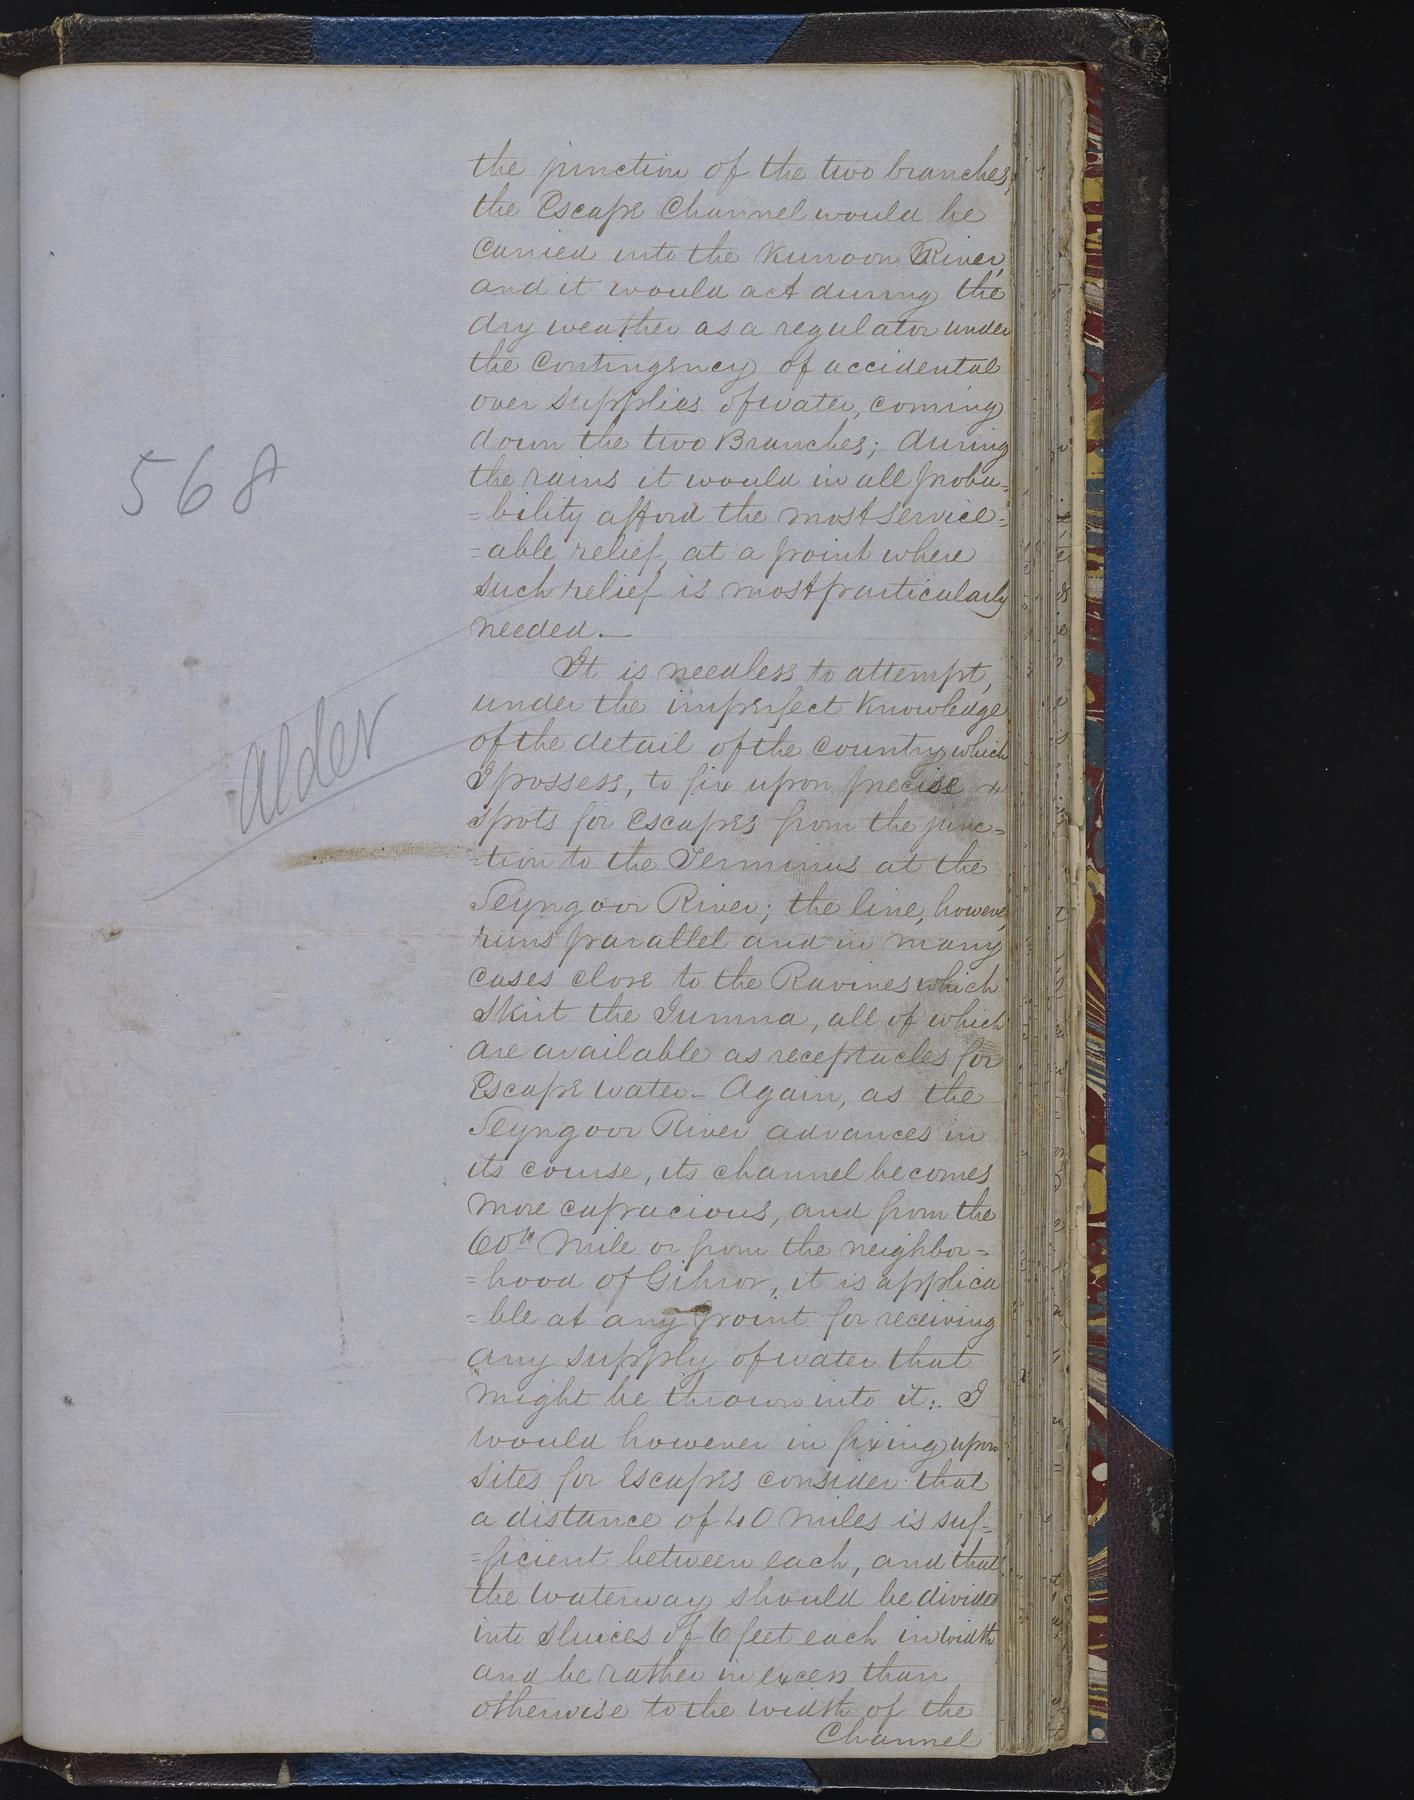 the junction of the two branches,
the Escape Channel would be
carried into the Kunoon River,
and it would act during the
dry weather as a regulator under
the contingency of accidental
over supplies of water, coming
down the two Branches; during
the rains it would in all proba=
=bility afford the most service=
=able relief, at a point where
such relief is most particularly
needed.—
It is needless to attempt,
under the imperfect Knowledge
of the detail of the country which
I possess, to fix upon precise
spots for Escapes from the junc=
=tion to the Terminus at the
Seyngoor River; the line, however,
runs parallel and in many
cases close to the Ravines which
skirt the Jumna, all of which
are available as receptacles for
Escape water – Again, as the
Seyngoor River advances in
its course, its channel becomes
more capacious, and from the
60th Mile or from the neighbor=
=hood of Gihror, it is applica
=ble at any point for receiving
any supply of water that
might be thrown into it: I
would however in fixing upon
sites for Escapes consider that
a distance of 40 Miles is suf=
=ficient between each, and that
the waterway should be divided
into sluices of 6 feet each in width
and be rather in excess than
otherwise to the width of the
Channel
568
Alder